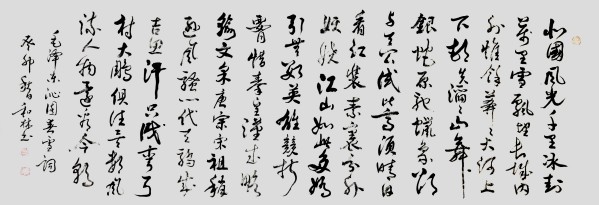 北國風光千里冰封
萬里雪飄望長城內
外惟餘莽莽大河上
下頓失滔滔山舞
銀蛇原馳蠟象欲
與天公試比高須晴日
看紅裝素裹分外
妖嬈江山如此多嬌
引無數英雄競折
腰惜秦皇漢武略
輸文采唐宗宋祖稍
遜風騷一代天驕成
吉思汗只識彎弓
射大雕俱往矣數風
流人物還看今朝
毛澤東沁園春雪詞